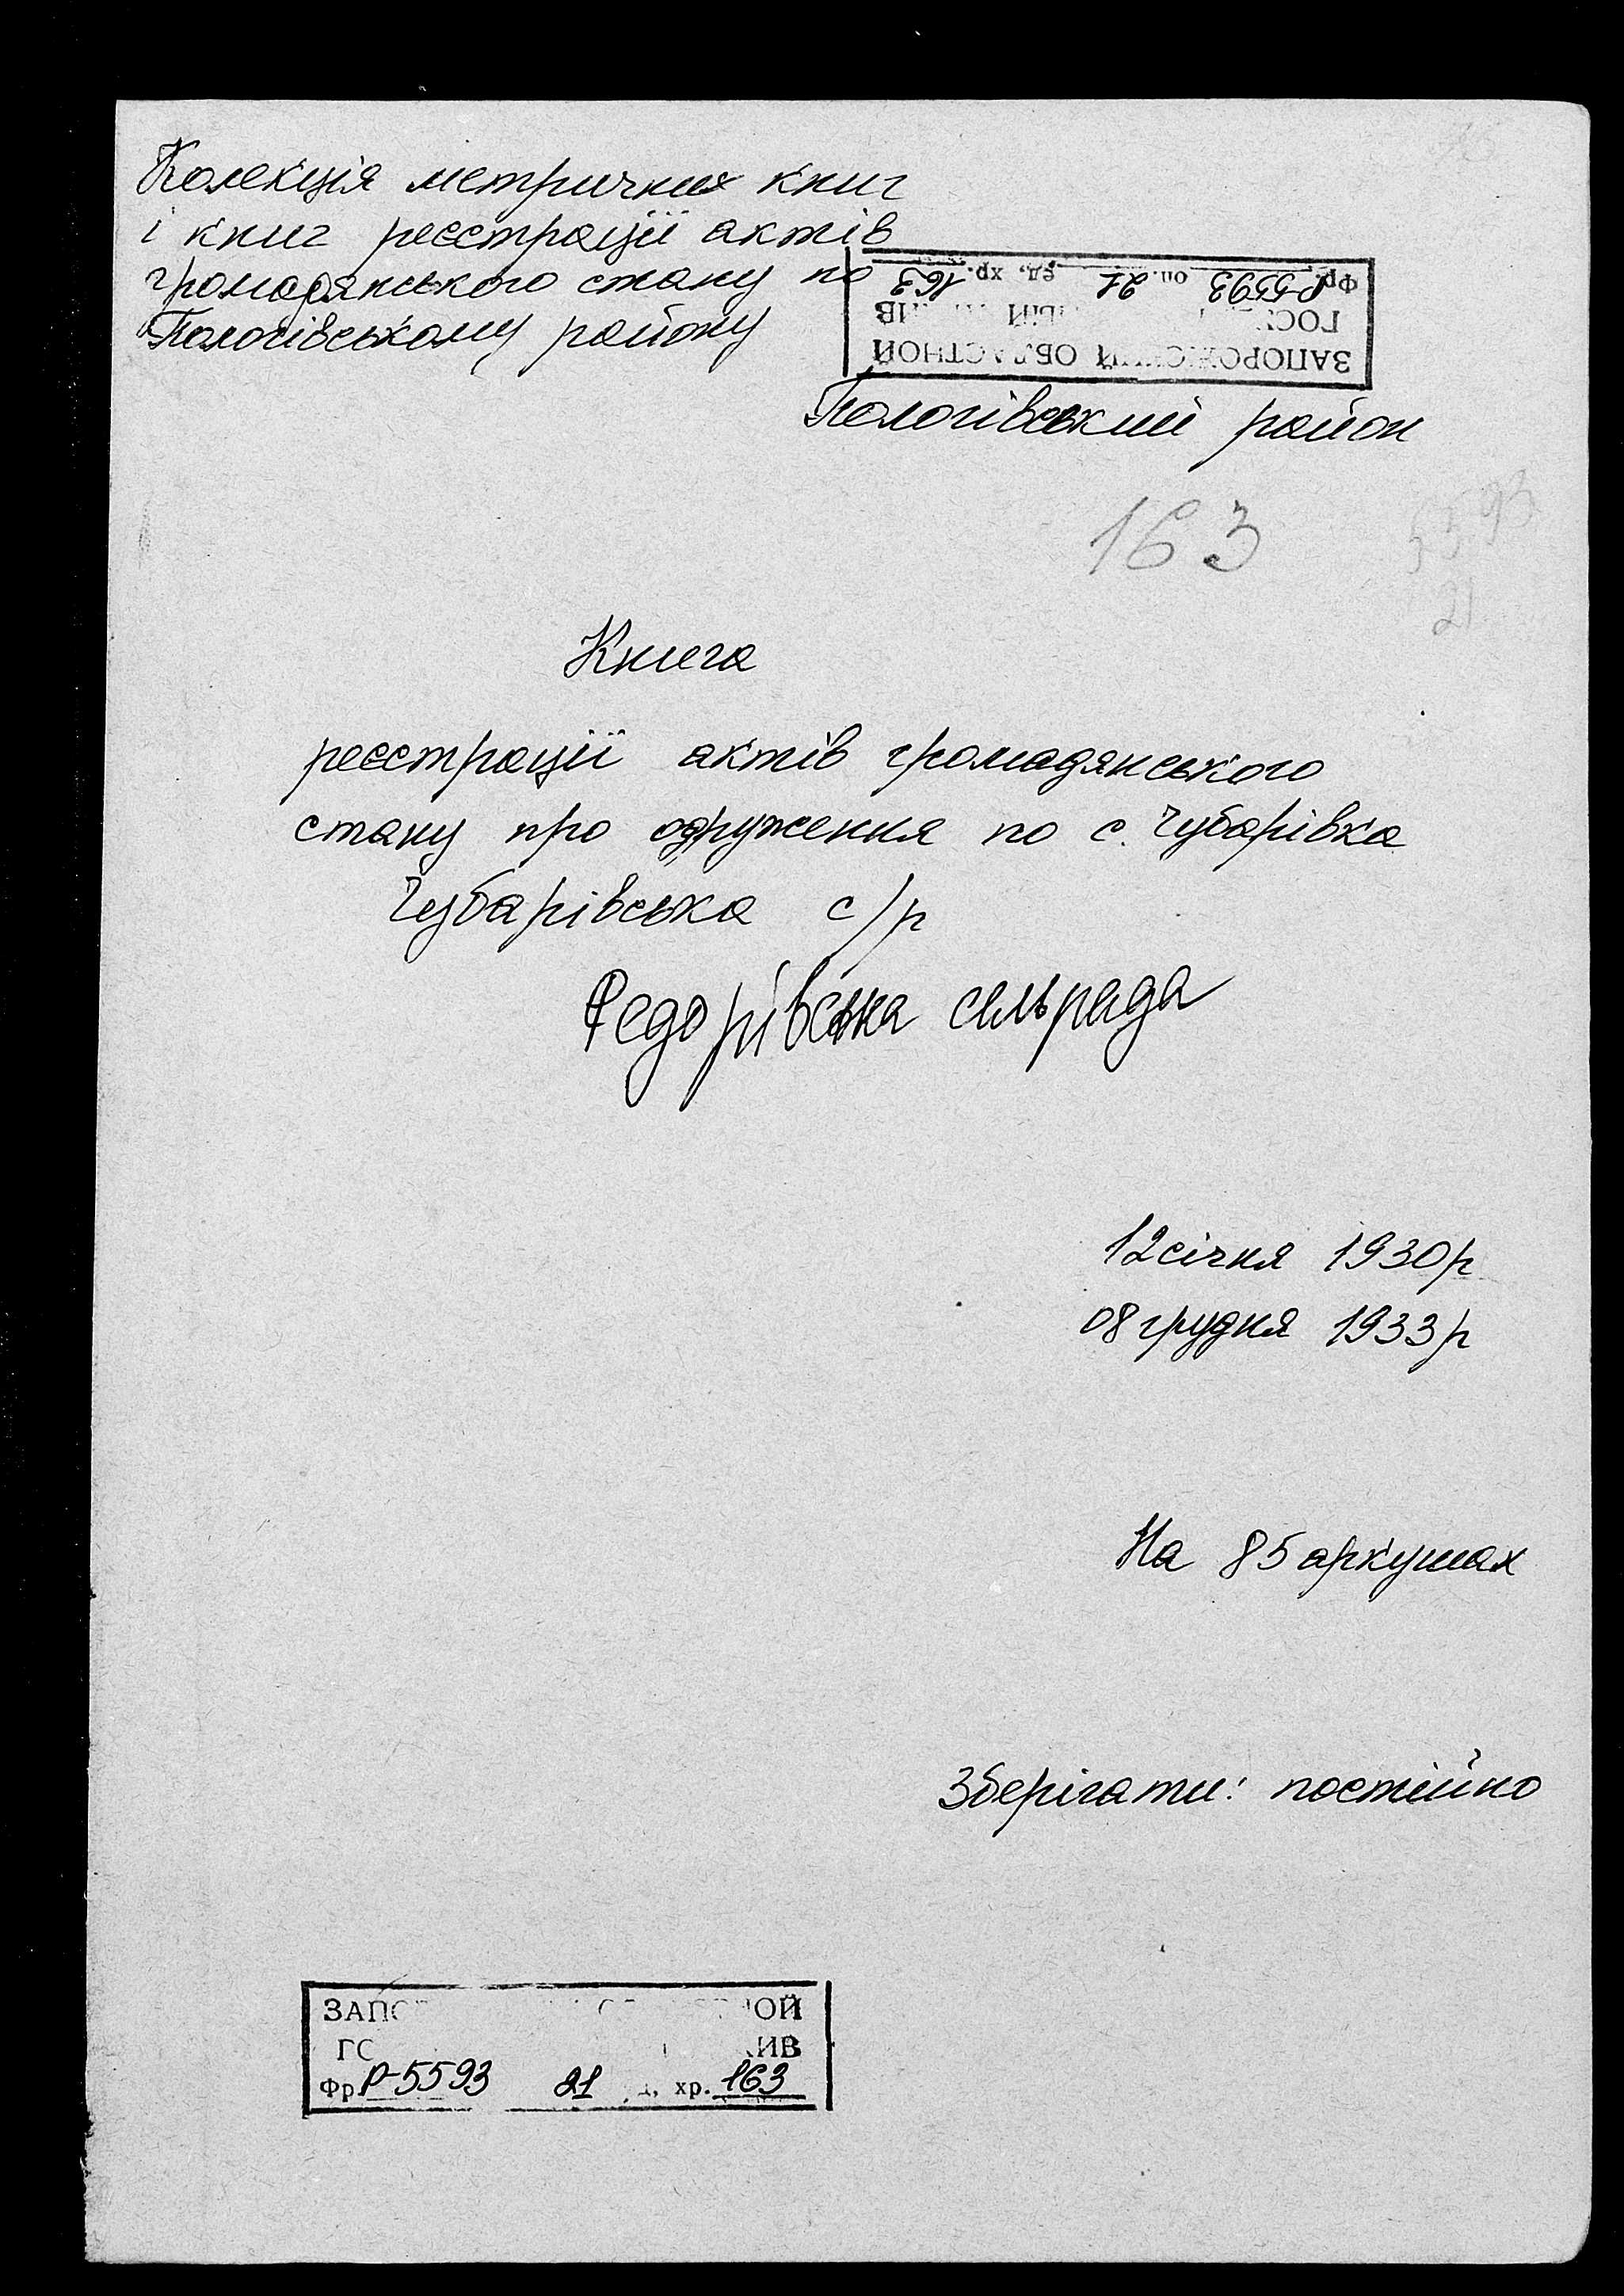 Колекція метричних книг
і книг реєстрації актів
громадянського стану по
Пологівському району
ЗАПОРОЖСКИЙ ОБЛАСТНОЙ
Фр. Р-5593 оп. 21 ед. хр. 163
Пологівський район
163
5593
21
Книга
реєстрації актів громадянського
стану про одруження по с. Чубарівка
Чубарівська с/р
Федорівська сільрада
12 січня 1930р
08 грудня 1933р
На 85 аркушах
Зберігати: постійно
Фр. Р-5593 21 хр. 163